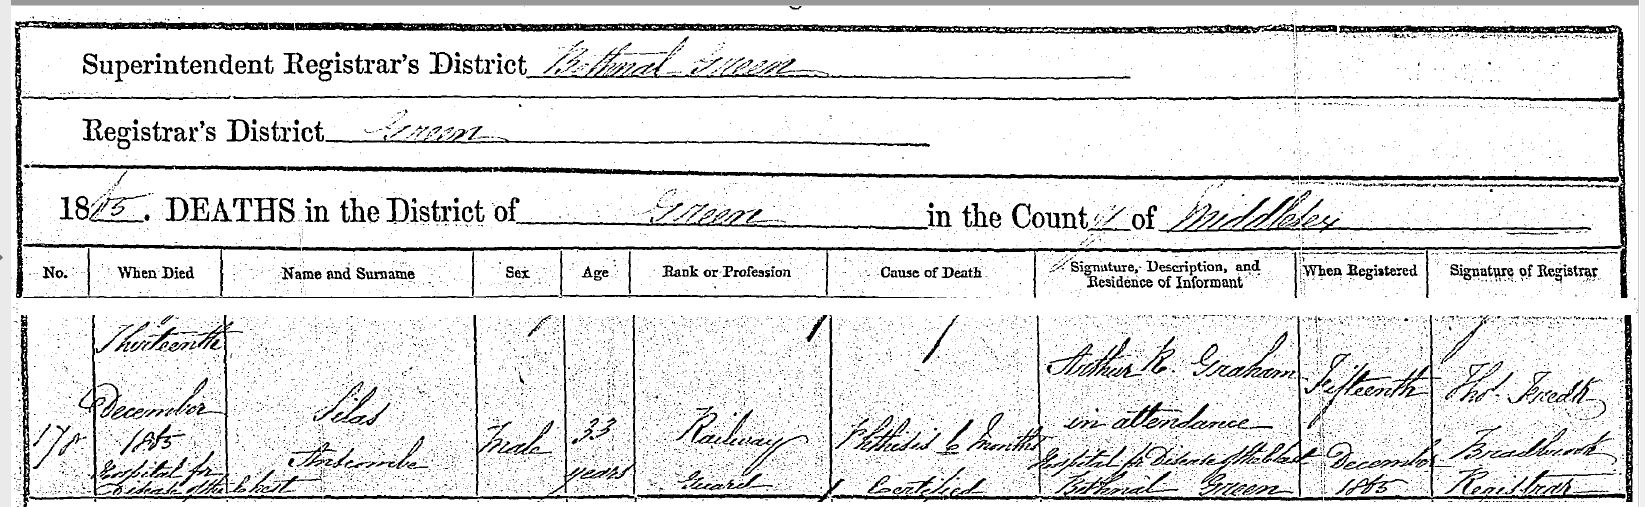 Superintendent Registrar's District Bethnal Green
Registrar's District Green
1865. DEATHS in the District of Green in the County of Middlesex
No. When Died Name and Surname Sex Age Rank or Profession Cause of Death Signature, Description, and Residence of Informant When Registered Signature of Registrar
178
Thirteenth
December
1865
Hospital for
Disease of the Chest
Silas
Anscombe
Male
33
years
Railway
Guard
Phthisis 6 Months
Certified
Arthur R Graham
in attendance
Hospital for Disease of the Chest
Bethnal Green
Fifteenth
December
1865
Thos. Fredk
Bradbrook
Registrar